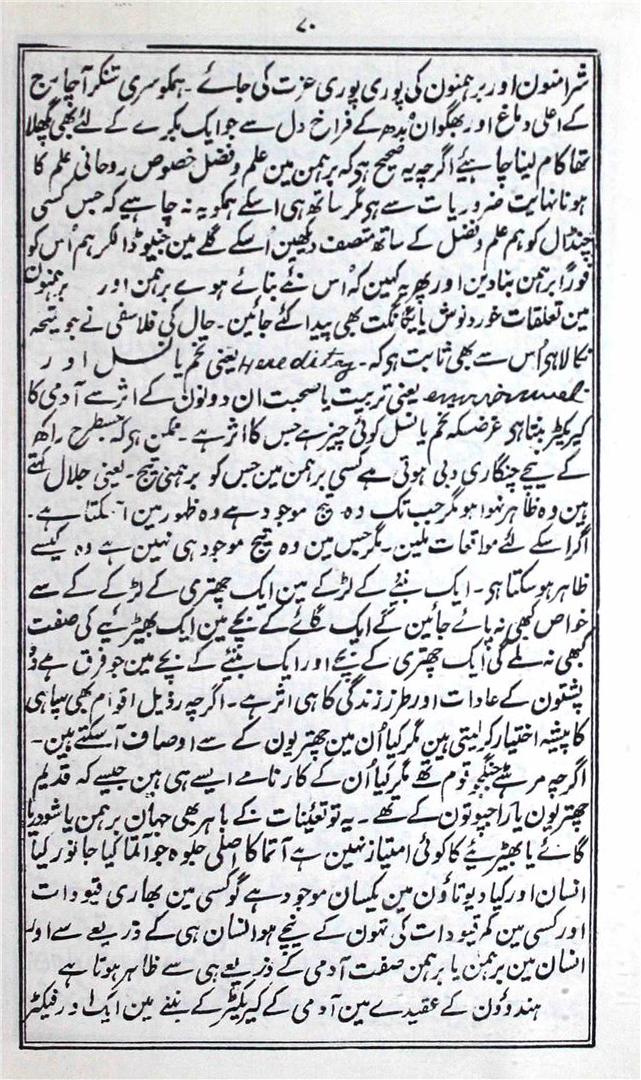 ۷۰
شرامنون اور برہمنون کی پوری پوری عزت کی جائے ۔ ہمکو سری شنکر آچارج
کے اعلی دماغ اور بھگوان بدھ کے فراخ دل سے جو ایک بکرے کے لئے بھی پگھلا
تھا کام لینا چاہیے اگرچہ یہ صحیح ہی کہ برہمن مین علم و فضل خصوص روحانی علم کا
ہونا نہایت ضروریات سے ہی مگر ساتھ ہی اسکے ہمکو یہ نہ چاہیے کہ جس کسی
چنڈال کو ہم علم و فضل کے ساتھ متصف دیکھین اُسکے گلے مین جنیو ڈالکر ہم اُس کو
فوراً برہمن بنا دین اور پھر یہ کہین کہ اُس نئے بنائے ہوے برہمن اور برہمنون
مین تعلقات خورد و نوش یا یگانگت بھی پیدا کئے جائین ۔ حال کی فلاسفی نے جو نتیجہ
نکالا ہی اُس سے بھی ثابت ہی کہ ۔ Heredity یعنی تخم یا نسل اور
یعنی تربیت یا صحبت ان دونون کے اثر سے آدمی کا
کیرکٹر بنتا ہی غرضکہ تخم یا نسل کوئی چیز ہے جس کا اثر ہے ۔ ممکن ہی کہ جسطرح راکھ
کے نیچے چنگاری دبی ہوتی ہے کسی برہمن مین جس کو برہمنی تیج ۔ یعنی جلال کہتے
ہین وہ ظاہر نہوا ہو مگر جب تک وہ تیج موجود ہے وہ ظہور مین آ سکتا ہے ۔
اگر اسکے لئے مواقعات ملین ۔ مگر جس مین وہ تیج موجود ہی نہین ہے وہ کیسے
ظاہر ہو سکتا ہی ۔ ایک بنئے کے لڑکے مین ایک چھتری کے لڑکے کے سے
خواص کبھی نہ پائے جائین گے ایک گائے کے بچے مین ایک بھیڑیے کی صفت
کبھی نہ ملے گی ایک چھتری کے بچے اور ایک بنئے کے بچے مین جو فرق ہے وہ
پشتون کے عادات اور طرز زندگی کا ہی اثر ہے ۔ اگرچہ رذیل اقوام بھی سپاہی
کا پیشہ اختیار کر لیتی ہین مگر کیا اُن مین چھتریون کے سے اوصاف آ سکتے ہین ۔
اگرچہ مرہٹے جنگجو قوم تھے مگر کیا اُن کے کارنامے ایسے ہی ہین جیسے کہ قدیم
چھتریون یا راجپوتون کے تھے ۔ یہ تو تعینات کے باہر بھی جہان برہمن یا شودر یا
گائے یا بھیڑیے کا کوئی امتیاز نہین ہے آتما کا اصلی جلوہ جو آتما کیا جانور کیا
انسان اور کیا دیوتاؤن مین یکسان موجود ہے گو کسی مین بھاری قیودات
اور کسی مین کم قیودات کی تہون کے نیچے ہو انسان ہی کے ذریعے سے اور
انسان مین برہمن یا برہمن صفت آدمی کے ذریعے ہی سے ظاہر ہوتا ہے
ہندوؤن کے عقیدے مین آدمی کے کیرکٹر کے بننے مین ایک اور فیکٹر